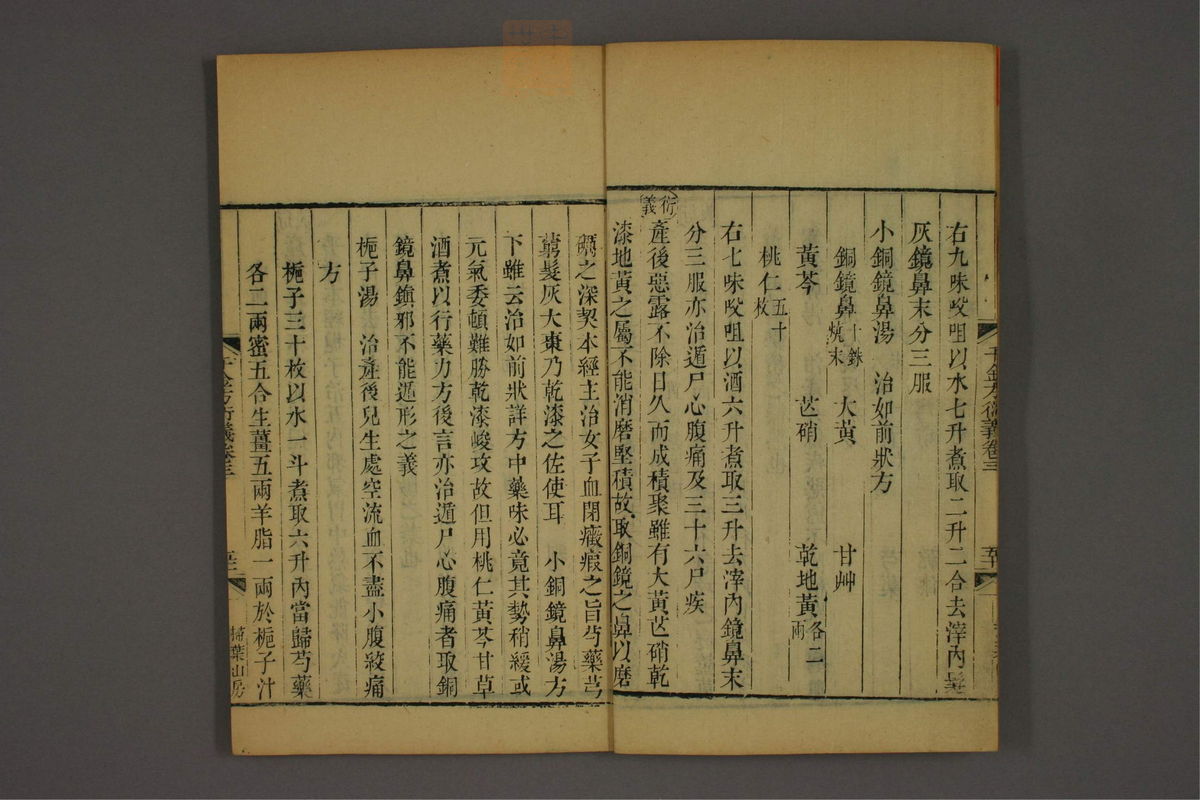 右九味㕮咀以水七升煮取二升二合去滓內髮
灰鏡鼻末分三服
小銅鏡鼻湯　治如前狀方
銅鏡鼻十銖燒末　大黃　甘艸
黃芩　芒硝　乾地黃各二兩
桃仁五十枚
右七味㕮咀以酒六升煮取三升去滓內鏡鼻末
分三服亦治遁尸心腹痛及三十六尸疾
衍義
產後惡露不除日久而成積聚雖有大黃芒硝乾
漆地黃之屬不能消磨堅積故取銅鏡之鼻以磨
礪之深契本經主治女子血閉癥瘕之旨芍藥芎
藭髮灰大棗乃乾漆之佐使耳　小銅鏡鼻湯方
下雖云治如前狀詳方中藥味必竟其勢稍緩或
元氣委頓難勝乾漆峻攻故但用桃仁黃芩甘草
酒煮以行藥力方後言亦治遁尸心腹痛者取銅
鏡鼻鎮邪不能遁形之義
梔子湯　治產後兒生處空流血不盡小腹絞痛
方
梔子三十枚以水一斗煮取六升內當歸芍藥
各二兩蜜五合生薑五兩羊脂一兩於梔子汁
千金方衍義卷三
掃葉山房